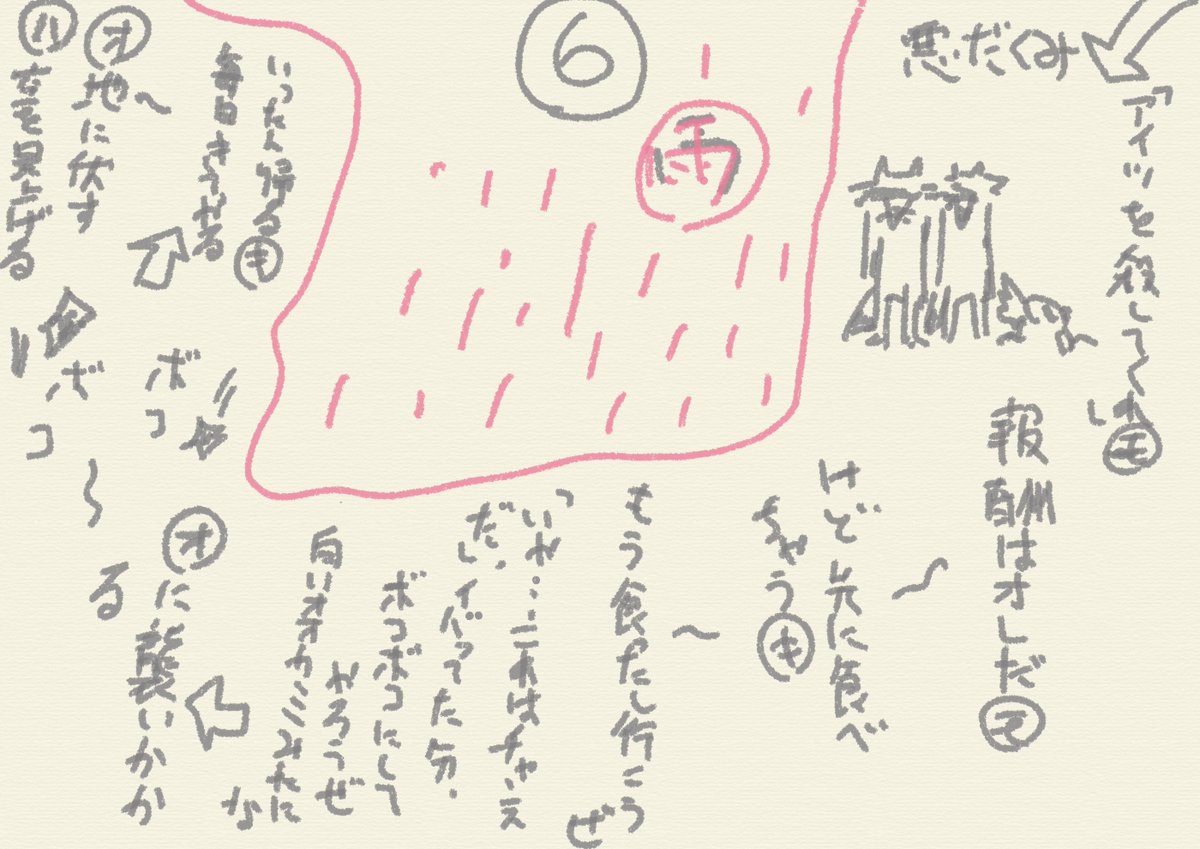 ⑥
雨
悪だくみ
「アイツを殺してくれ
モ
報酬はオレだ
そ
けど先に食べ
ちゃう
も
〜
もう食ったし行こう
ぜ
いや…これはチャンス
だ。イバってた分、
ボコボコにして
やろうぜ
白いオオカミみたに
な
オに襲いかか
る
〜
ボコ
ボコ
いったん帰る
も
毎日きてやる
〜
オ
地に伏す
ハ
空を見上げる